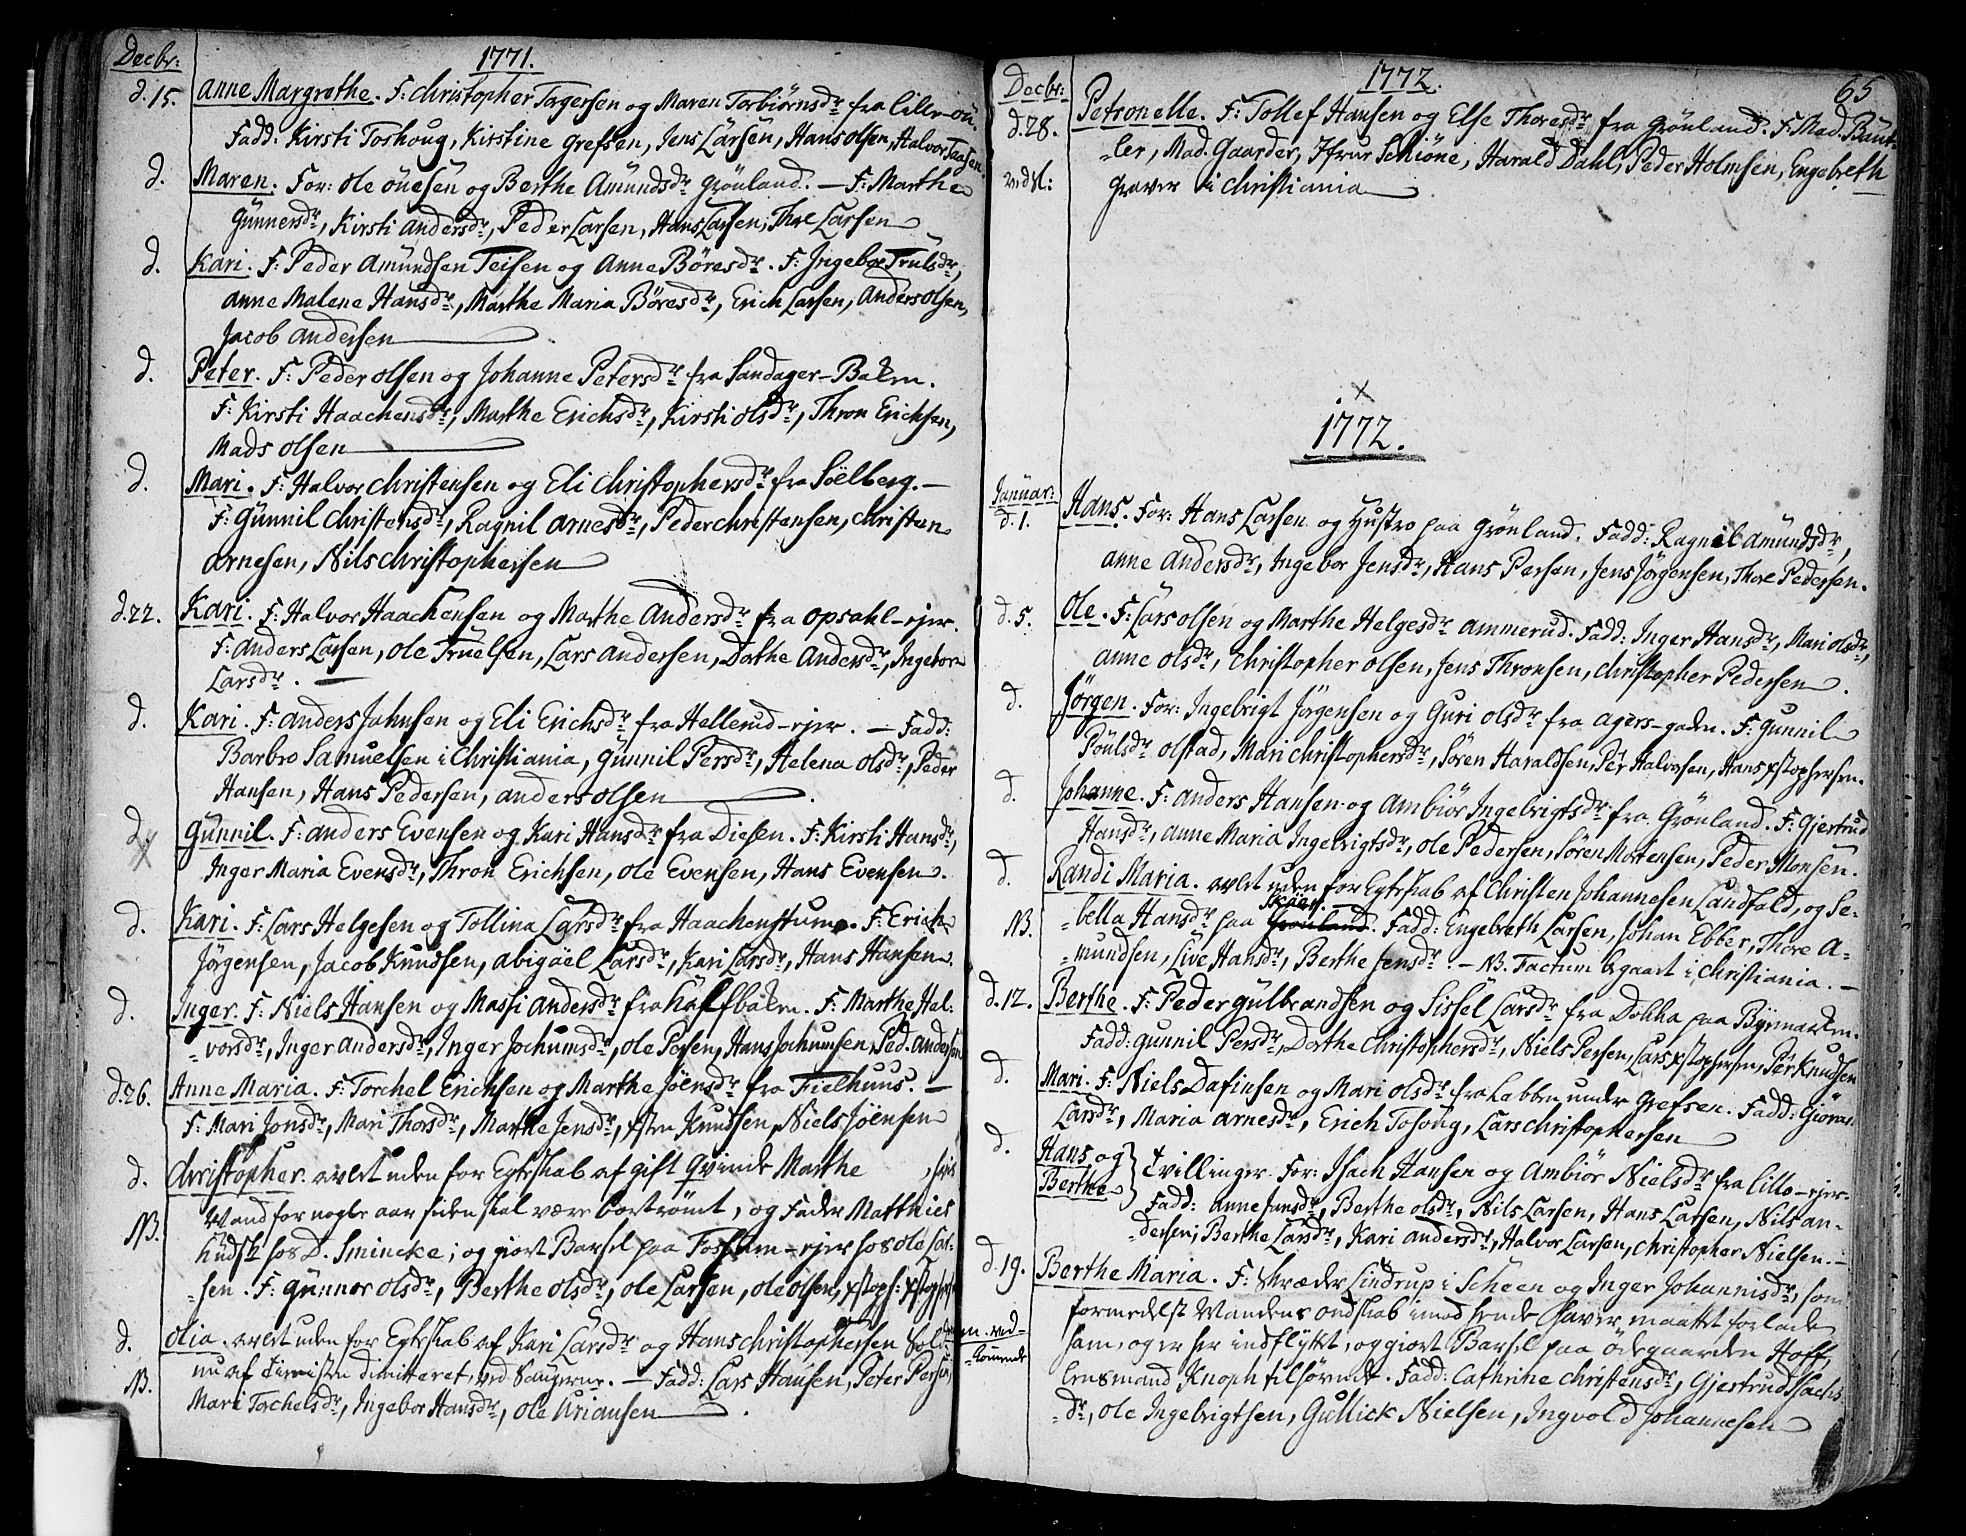 Decbr: 1771.
d. 15. Anne Margrethe. F: Christopher Torgersen og Maren Torbiørnsdr fra Lille-
Fadd: Kirsti Toshoug, Kirstine Grefsen, Jens Larsen, Hans Olsen, Halvor Taasen.
d. Maren. For: Ole Önesen og Berthe Amundsdr Grönland. — F: Marthe
Gunnersdr, Kirsti Andersdr, Peder Larsen, Hans Larsen, Thore Larsen
d. Kari. F: Peder Amundsen Teisen og Anne Börresdr. F: Ingebor Trulsdr,
Anne Malene Hansdr, Marthe Maria Böresdr, Erich Larsen, Anders Olsen,
Jacob Andersen
d. Peter. F: Peder Olsen og Johanne Petersdr fra Sandager-Baken.
F: Kirsti Haachensdr, Marthe Erichsdr, Kirsti Olsdr, Thron Erichsen,
Mads Olsen
d. Mari. F: Halvor Christensen og Eli Christophersdr fra Söelberg. —
F: Gunnil Christensdr, Ragnil Arnesdr, Peder Christensen, Christen
Arnesen, Nils Christophersen
d. 22. Kari. F: Halvor Haachensen og Marthe Andersdr fra Opsahl-ejer.
F: Anders Larsen, Ole Truelsen, Lars Andersen, Dorthe Andersdr, Ingebor
Larsdr. —
d. Kari. F: Anders Johnsen og Eli Erichsdr fra Hellerud-ejer. — Fadd:
Barbro Samuelsen i Christiania, Gunnil Persdr, Helena Olsdr, Peder
Hansen, Hans Pedersen, Anders Olsen.
d. Gunnil. F: Anders Evensen og Kari Hansdr fra Diesen. F: Kirsti Hansdr,
X Inger Maria Evensdr, Thron Erichsen, Ole Evensen, Hans Evensen.
d. Kari. F: Lars Helgesen og Tollina Larsdr fra Haachenstum. F: Erich
Jörgensen, Jacob Knudsen, Abigäel Larsdr, Kari Larsdr, Hans Hansen.
d. Inger. F: Niels Hansen og Massi Andersdr fra Kalfbaken. F: Marthe Hal-
vorsdr, Inger Andersdr, Inger Jochumsdr, Ole Persen, Hans Jochumsen, Ped. Andersen
d. 26. Anne Maria. F: Torchel Erichsen og Marthe Joensdr fra Fielhuus. —
F: Mari Jonsdr, Mari Thorsdr, Marthe Jensdr, Knudsen, Niels Jöensen
d. Christopher. avlet uden for Egteskab af gift Qvinde Marthe , hvis
Mand for nogle aar siden skal være bortrömt, og Fader Matthies
NB. Kudsk hos D. Smincke; og giort Barsel paa Fossum-ejer hos Ole Lar-
sen. F: Gunnor Olsdr, Berthe Olsdr, Ole Larsen, Ole Olsen, Xstoph: Xstophersen
d. Olia. avlet uden for Egteskab af Kari Larsdr og Hans Christophersen Sold
nu af Tienisten dimitteret, ved Saugerne. — Fadd: Lars Hansen, Peter Persen,
NB. Mari Torchelsdr, Ingebor Hansdr, Ole Ariansen.
Decbr: 1772. 65
d. 28. Petronelle. F: Tollef Hansen og Else Thoresdr fra Grönland. F: Mad. Baut-
ler, Mad. Gaarder, Jfrue Schiöne, Harald Dahl, Peder Holmsen, Engebreth
Graver i Christiania.
X
1772.
Januar:
d. 1. Hans. For: Hans Larsen og Hustro paa Grönland. Fadd: Ragnil Amundsdr,
Anne Andersdr, Ingebor Jensdr, Hans Persen, Jens Jörgensen, Thore Pedersen.
d. 5. Ole. F: Lars Olsen og Marthe Helgesdr Ammerud. Fadd: Inger Hansdr, Mari Olsdr,
Anne Olsdr, Christopher Olsen, Jens Thronsen, Christopher Pedersen.
d. Jörgen. For: Ingebrigt Jörgensen og Guri Olsdr fra Agers-gaden. F: Gunnil
Poulsdr Olstad, Mari Christophersdr, Sören Haraldsen, Per Halvorsen, Hans Xstophersen.
d. Johanne. F: Anders Hansen og Ambiör Ingebrigtsdr fra Grönland. F: Gjertrud
Hansdr, Anne Maria Ingebrigtsdr, Ole Pedersen, Sören Mortensen, Peder Monsen.
d. Randi Maria. avlet uden for Egteskab af Christen Johannesen Landfald, og Se-
NB. bella Hansdr paa Grönland. Fadd: Engebreth Larsen, Johan Ebber, Thore A-
mundsen, Live Hansdr, Berthe Jensdr. — NB. Factum begaaet i Christiania. —
d. 12. Berthe. F: Peder Gulbrandsen og Sissel Larsdr fra Dokka paa Bymarken.
Fadd: Gunnil Persdr, Dorthe Christophersdr, Niels Persen, Lars Xstophersen, Per Knudsen
d. Mari. F: Niels Dafinsen og Mari Olsdr fra Labben under Grefsen. Fadd: Giöran
Larsdr, Maria Arnesdr, Erich Tosoug, Lars Christophersen
d. Hans og
Berthe } Tvillinger. For: Isach Hansen og Ambiör Nielsdr fra Lillo-ejer.
Fadd: Anne Junsdr, Berthe Olsdr, Nils Larsen, Hans Larsen, Nils An-
dersen; Berthe Larsdr, Kari Andersdr, Halvor Larsen, Christopher Nielsen. —
d. 19. Berthe Maria. F: Skræder Lindrup i Scheen og Inger Johannisdr, som
formedelst Mandens ondskab imod hende har maattet forlade
ham, og er her indflyttet, og giort Barsel paa Ödegaarden Hoff,
Lensmand Knoph tilhörende. Fadd: Cathrine Christensdr, Gjertrud Isachs-
dr, Ole Ingebrigtsen, Gullick Nielsen, Ingvold Johannesen